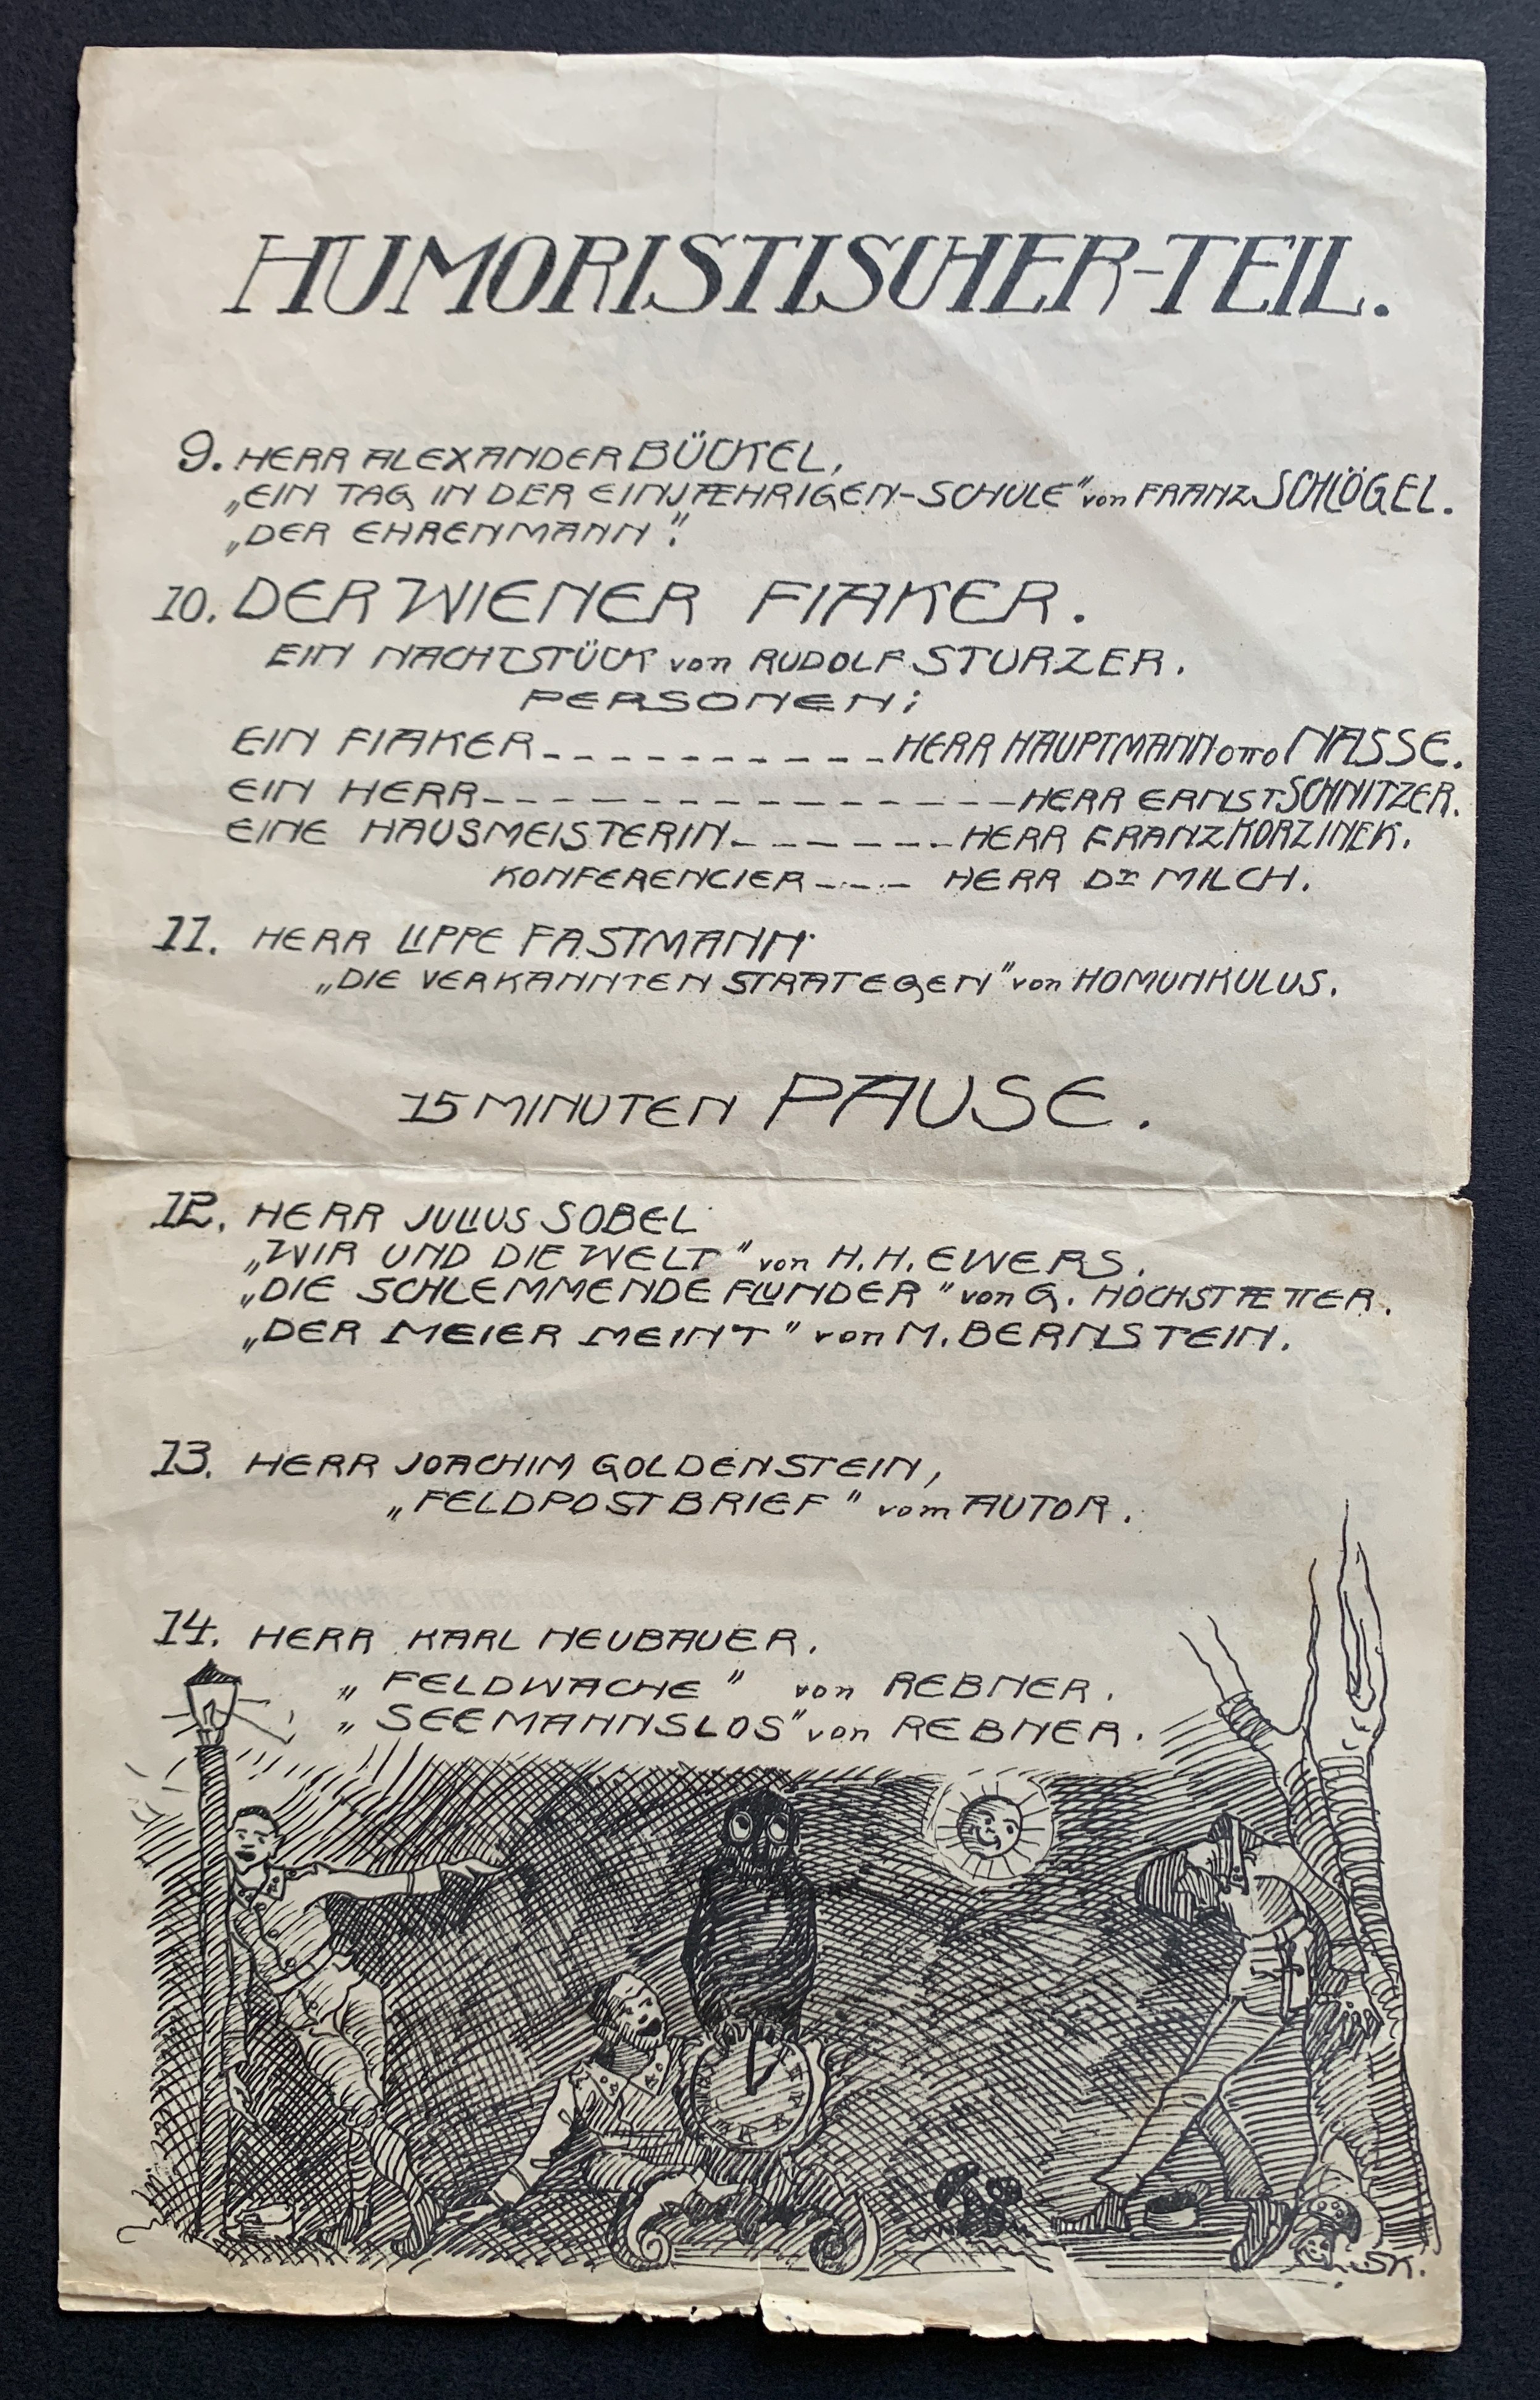 HUMORISTISCHER-TEIL.
9. HERR ALEXANDER BÜCKEL,
„EIN TAG IN DER EINJÆHRIGEN-SCHULE" von FRANZ SCHLÖGEL.
„DER EHRENMANN".
10. DER WIENER FIAKER.
EIN NACHTSTÜCK von RUDOLF STURZER.
PERSONEN:
EIN FIAKER - - - - - - - - - - - HERR HAUPTMANN OTTO NASSE.
EIN HERR - - - - - - - - - - - - - - - - - HERR ERNST SCHNITZER.
EINE HAUSMEISTERIN - - - - - - - HERR FRANZ KORZINEK.
KONFERENCIER - - - - HERR Dr MILCH.
11. HERR LIPPE FASTMANN
„DIE VERKANNTEN STRATEGEN" von HOMUNKULUS.
15 MINUTEN PAUSE.
12. HERR JULIUS SOBEL
„WIR UND DIE WELT" von H.H. EWERS.
„DIE SCHLEMMENDE FLUNDER" von G. HOCHSTÆTTER.
„DER MEIER MEINT" von M. BERNSTEIN.
13. HERR JOACHIM GOLDENSTEIN,
„FELDPOSTBRIEF" vom AUTOR.
14. HERR KARL NEUBAUER.
„FELDWACHE" von REBNER.
„SEEMANNSLOS" von REBNER.
SK.